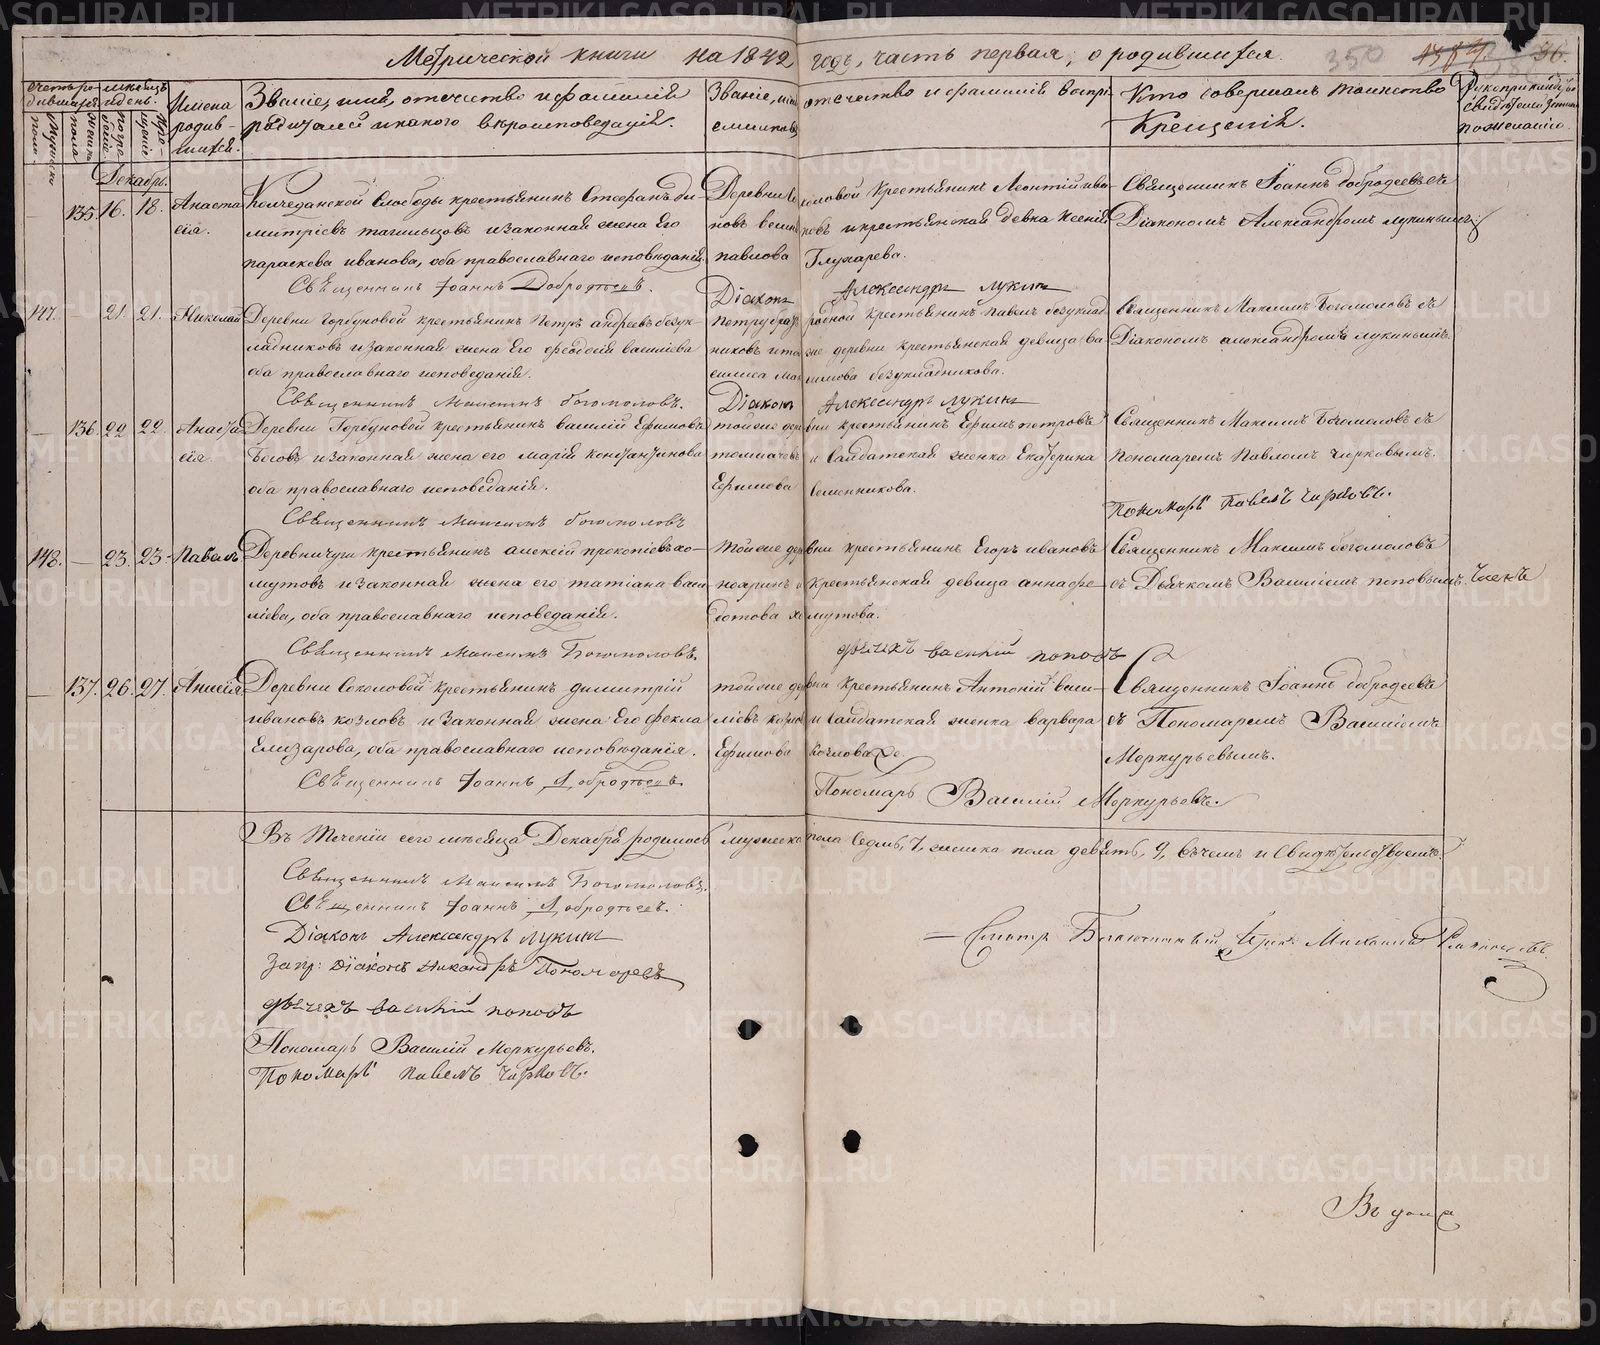 Метрической книги на 1842 годъ, часть первая, о родившихся.
350
36.
Счетъ ро-
дившихся
Мужеска
пола
Женска
пола
мѣсяцъ
и день.
рожденіе
крещеніе
Имена
родив-
шихся.
Званіе, имя, отечество и фамилія
родителей и какого вѣроисповеданія.
Званіе, имя отечество и фамилія воспрі-
емниковъ
Кто совершалъ таинство
Крещенія.
Рукоприкладство
свидѣтелей записи
по желанію.
Декабрь.
135. 16. 18. Анаста
сіа.
Колчеданской слободы крестьянинъ Стефанъ Ди-
митріевъ тагильцовъ и законная жена Его
параскева иванова, оба православнаго исповѣданія.
Священникъ Іоаннъ Добродѣевъ.
павлова Глухарева.
новъ и крестьянская девка Ксенія
Священникъ Іоаннъ добродеевъ съ
Діакономъ Александромъ лукинымъ
Діаконъ Александръ лукинъ
147. — 21. 21. Николай
Деревни Горбуновой крестьянинъ Петръ андреевъ безук-
ладниковъ и законная жена Его Феодосія василіева
оба православнаго исповеданія.
Священникъ Максимъ богомоловъ.
крестьянинъ Павелъ безуклад-
никовъ и той же деревни крестьянская девица Ва-
силиса максимова безукладникова.
Священникъ Максимъ Богомоловъ съ
Діакономъ александромъ лукинымъ.
Діаконъ Александръ лукинъ
— 136. 22 22. Анаста
сія.
Деревни Горбуновой крестьянинъ василій Ефимовъ
Боговъ и законная жена его марія константинова
оба православнаго исповеданія.
Священникъ Максимъ богомоловъ
той же деревни крестьянинъ Ефимъ петровъ
толмачевъ и салдатская женка Екатерина
Ефимова
Священникъ Максимъ Богомоловъ съ
пономаремъ Павломъ чирковымъ.
Пономарь Павелъ Чирковъ.
148. — 23. 23. Павелъ
крестьянинъ алексій прокопіевъ хо-
мутовъ и законная жена его татіана васи-
ліева, оба православнаго исповеданія.
Священникъ Максимъ Богомоловъ.
той же деревни крестьянинъ Егоръ ивановъ
крестьянская девица анна фе-
дотова хомутова.
Священникъ Максимъ богомоловъ
съ Дьячкомъ Василіемъ поповымъ.
дьячекъ василій поповъ
— 137. 26. 27. Анисія
Деревни Соколовой крестьянинъ димитрій
ивановъ козловъ и законная жена Его Фекла
Елизарова, оба православнаго исповѣданія.
Священникъ Іоаннъ Добродѣевъ
той же деревни крестьянинъ Антоній васи-
ліевъ козловъ и салдатская женка варвара
Ефимова козлова
Священникъ Іоаннъ добродеевъ
съ Пономаремъ Василіемъ
Меркурьевымъ.
Пономарь Василій Меркурьевъ.
Въ теченіи сего мѣсяца Декабря родилось мужеска пола седмь, 7, женска пола девять, 9, въ чемъ и свидѣтельствуемъ.
Священникъ Максимъ Богомоловъ.
Священникъ Іоаннъ Добродѣевъ.
Діаконъ Александръ Лукинъ
Діаконъ Никандръ Пономаревъ
дьячекъ василій поповъ
Пономарь Василій Меркурьевъ.
Пономарь Павелъ Чирковъ.
METRIKI.GASO-URAL.RU